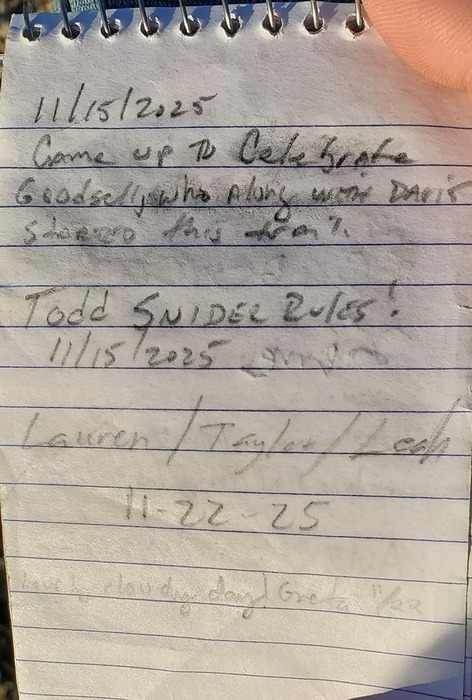 11/15/2025
Came up to Celebrate
Goodsell, who along with David
started this
Todd SNIDER RULES!
11/15/2025
Lauren / Taylor / Leah
11-22-25
Lovely cloudy day! Greta 11/22